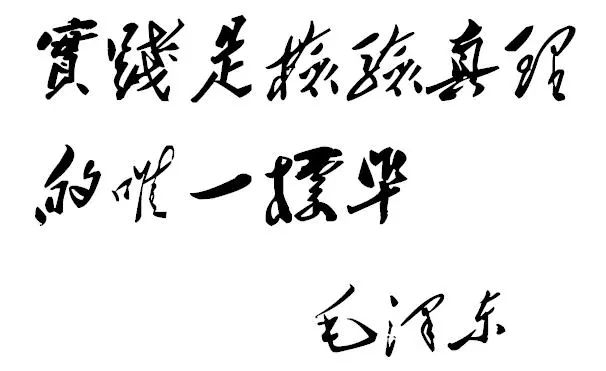 實踐是檢驗真理
的唯一標準
毛泽东